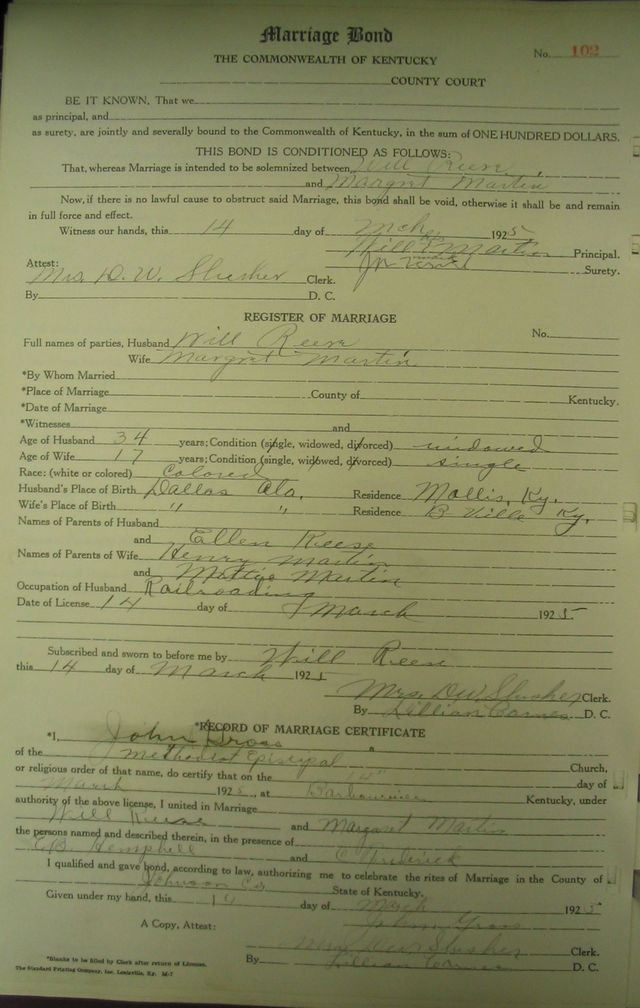 Marriage Bond
THE COMMONWEALTH OF KENTUCKY
No. 102
COUNTY COURT
BE IT KNOWN, That we
as principal, and
as surety, are jointly and severally bound to the Commonwealth of Kentucky, in the sum of ONE HUNDRED DOLLARS.
THIS BOND IS CONDITIONED AS FOLLOWS:
That, whereas Marriage is intended to be solemnized between Will Reese,
and Margret Martin
Now, if there is no lawful cause to obstruct said Marriage, this bond shall be void, otherwise it shall be and remain
in full force and effect.
Witness our hands, this 14 day of Mch, 1925
Will Martin Principal.
Surety.
Attest:
Mrs. D. W. Slusher Clerk.
By D. C.
REGISTER OF MARRIAGE
No.
Full names of parties, Husband Will Reese
Wife Margret Martin
*By Whom Married
*Place of Marriage County of Kentucky.
*Date of Marriage
*Witnesses and
Age of Husband 34 years; Condition (single, widowed, divorced) widowed
Age of Wife 17 years; Condition (single, widowed, divorced) single
Race: (white or colored) Colored
Husband's Place of Birth Dallas Ala. Residence Mollis, Ky.
Wife's Place of Birth " " Residence B Ville Ky.
Names of Parents of Husband
and Ellen Reese
Names of Parents of Wife Henry Martin
and Mattie Martin
Occupation of Husband Railroading
Date of License 14 day of March 1925
Subscribed and sworn to before me by Will Reese
this 14 day of March 1925
Mrs. D W Slusher Clerk.
By Lillian D. C.
*RECORD OF MARRIAGE CERTIFICATE
*I, John Gross a
of the Methodist Episcopal Church,
or religious order of that name, do certify that on the 14" day of
March 1925, at Barbourville Kentucky, under
authority of the above license, I united in Marriage
Will Reese and Margaret Martin
the persons named and described therein, in the presence of
C.B. Hemphill and C.
I qualified and gave bond, according to law, authorizing me to celebrate the rites of Marriage in the County of
Johnson Co State of Kentucky.
Given under my hand, this 14 day of March 1925
John Gross
A Copy, Attest:
Mrs D W Slusher Clerk.
By Lillian D. C.
*Blanks to be filled by Clerk after return of License.
The Standard Printing Company, Inc. Louisville, Ky. M-7